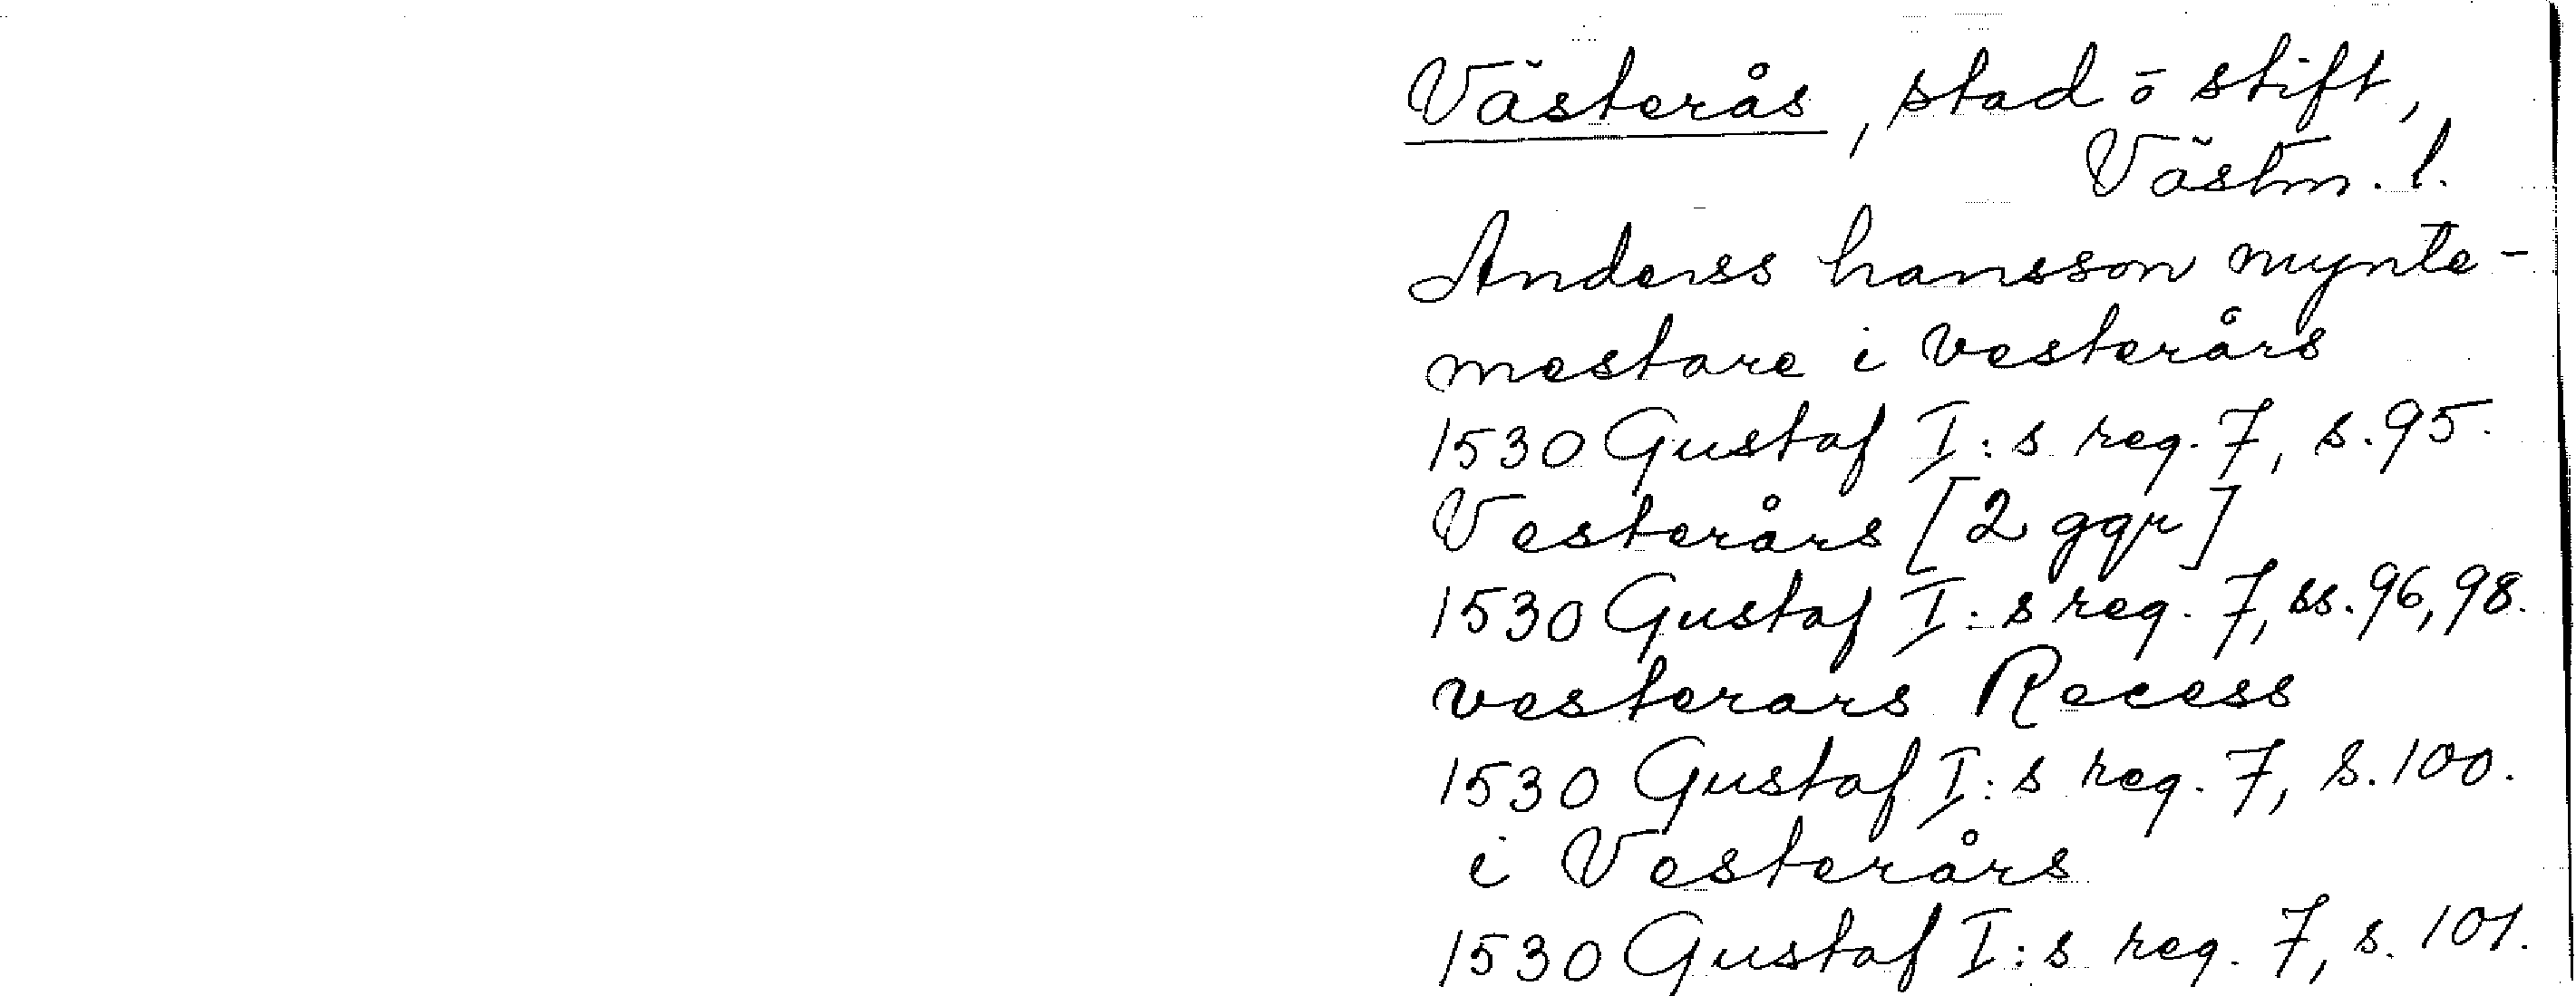 Västerås, stad o stift,
Västm. l.
Anderss hansson mynte-
mestare i vesterårs
1530 Gustaf I:s reg. 7, s. 95.
Vesterårs [2 ggr]
1530 Gustaf I:s reg. 7, ss. 96, 98.
vesterars Recess
1530 Gustaf I:s reg. 7, s. 100.
i Vesterårs
1530 Gustaf I:s reg. 7, s. 101.